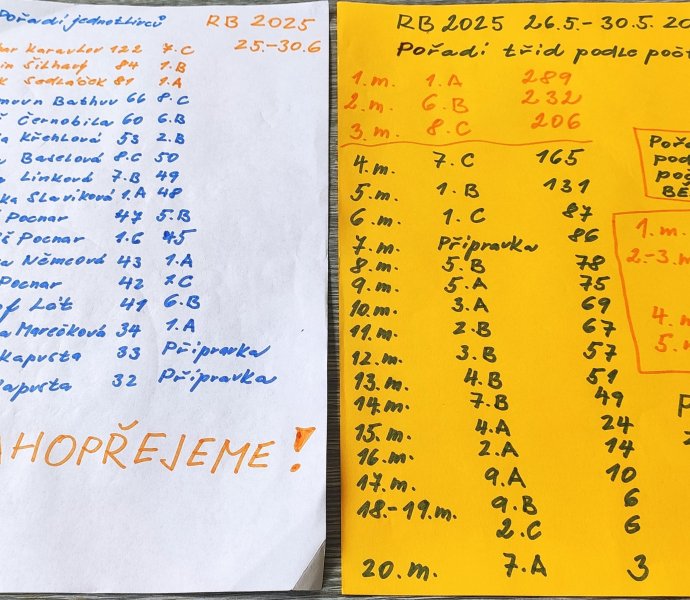 Pořadí jednotlivců
RB 2025
25.-30.6
Karavlov 122 7.C
Šilhavý 84 1.B
Sedláček 81 1.A
Bathuv 66 8.C
Černobila 60 6.B
Křehlová 53 2.B
Baselová 8.C 50
Linková 7.B 49
Slavíková 1.A 48
Pocnar 47 5.B
Pocnar 1.6 45
Němcová 43 1.A
Pocnar 42 7.C
Lát 41 6.B
Marečková 34 1.A
Kapusta 33 Přípravka
Kapusta 32 Přípravka
AHOPŘEJEME!
RB 2025 26.5.-30.5. 20
Pořadí tříd podle poč
1.m. 1.A 289
2.m. 6.B 232
3.m. 8.C 206
4.m. 7.C 165
5.m. 1.B 131
6.m. 1.C 87
7.m. Přípravka 86
8.m. 5.B 78
9.m. 5.A 75
10.m. 3.A 69
11.m. 2.B 67
12.m. 3.B 57
13.m. 4.B 51
14.m. 7.B 49
15.m. 4.A 24
16.m. 2.A 14
17.m. 9.A 10
18.-19.m. 9.B 6
2.C 6
20.m. 7.A 3
Pořa
pod
poč
BĚ
1.m.
2.-3.m
4.m
5.m